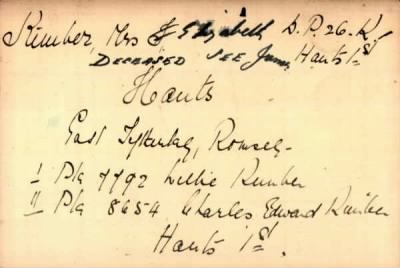 Kimber, Mrs F Elizabeth D.P. 26. K
DECEASED SEE June. Hants 1st
Hants
East Tytherley, Romsey.
I Pla 7792 Lillie Kimber
II Pla 8654 Charles Edward Kimber
Hants 1st.